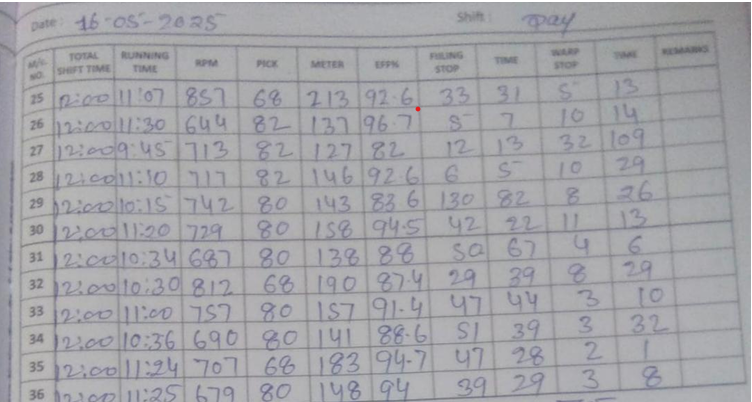 Date: 16-05-2025 Shift: Day
M/c. NO. TOTAL SHIFT TIME RUNNING TIME RPM PICK METER EFF% FILLING STOP TIME WARP STOP TIME REMARKS
25 12:00 11:07 857 68 213 92.6 33 31 5 13
26 12:00 11:30 644 82 137 96.7 5 7 10 14
27 12:00 9:45 713 82 127 82 12 13 32 109
28 12:00 11:10 717 82 146 92.6 6 5 10 29
29 12:00 10:15 742 80 143 83.6 130 82 8 26
30 12:00 11:20 729 80 158 94.5 42 22 11 13
31 12:00 10:34 687 80 138 88 50 67 4 6
32 12:00 10:30 812 68 190 87.4 29 39 8 29
33 12:00 11:00 757 80 157 91.4 47 44 3 10
34 12:00 10:36 690 80 141 88.6 51 39 3 32
35 12:00 11:24 707 68 183 94.7 47 28 2 1
36 12:00 11:25 679 80 148 94 39 29 3 8